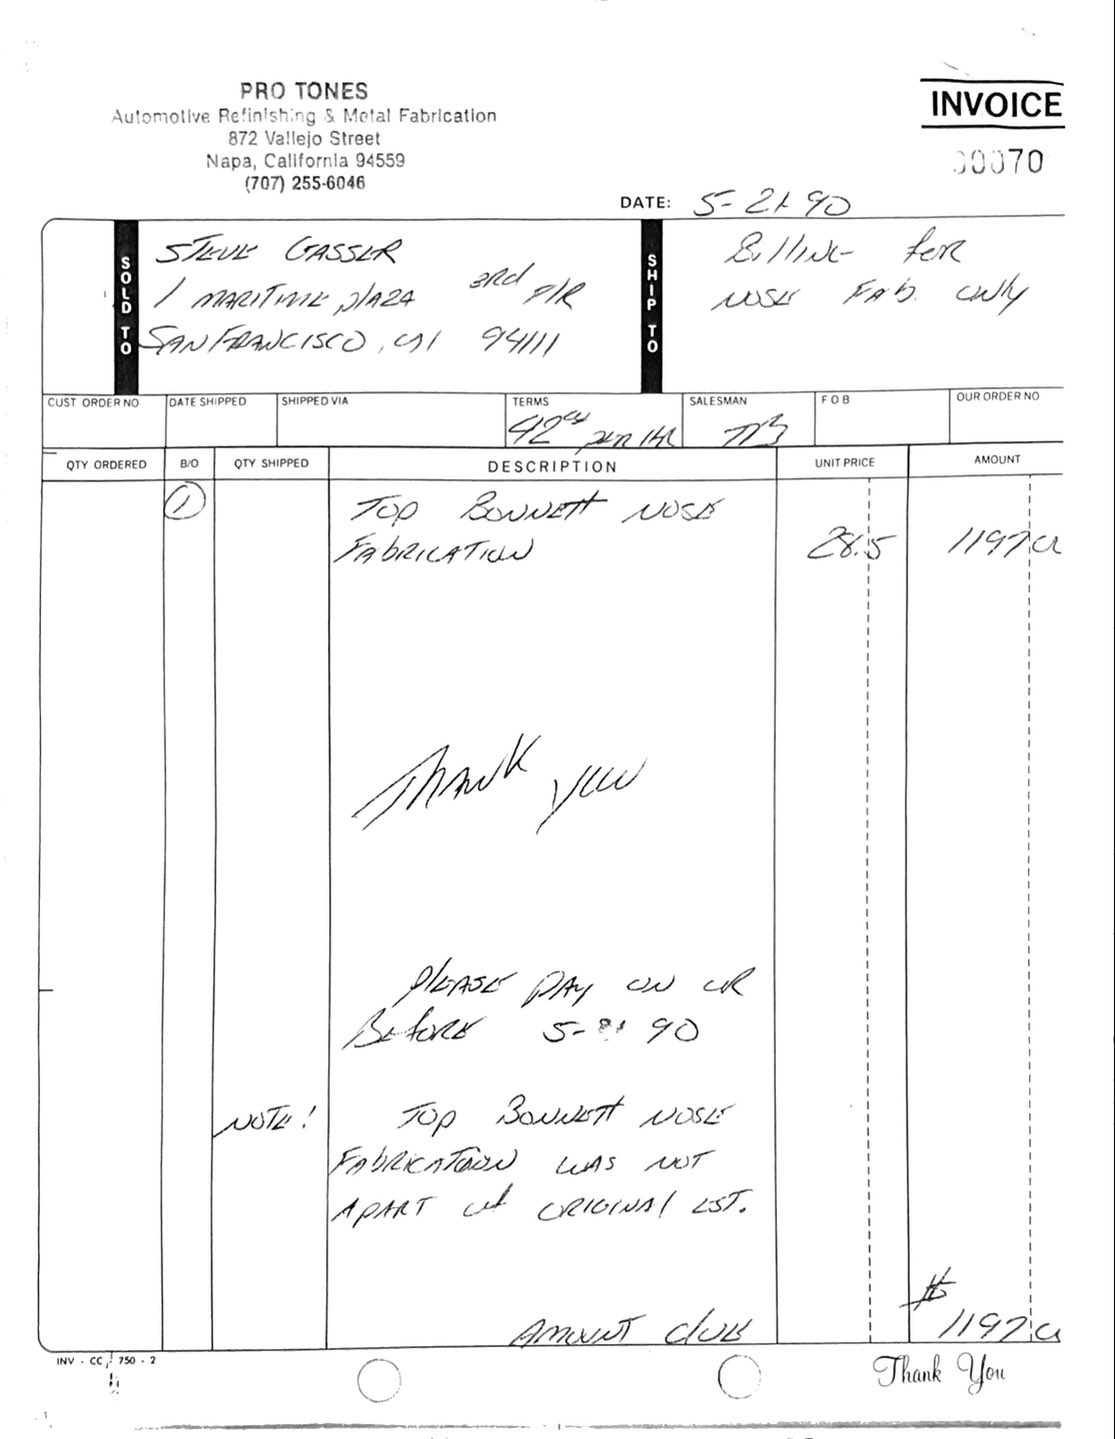 PRO TONES
Automotive Refinishing & Metal Fabrication
872 Vallejo Street
Napa, California 94559
(707) 255-6046
INVOICE
00070
DATE: 5-21-90
SOLD TO
STEVE GASSER
1 MARITIME PLAZA 3RD FlR
SAN FRANCISCO, CA 94111
SHIP TO
Billing for
NOSE FAB. ONLY
CUST ORDER NO DATE SHIPPED SHIPPED VIA TERMS SALESMAN F O B OUR ORDER NO
42 PER HR
QTY ORDERED B/O QTY SHIPPED DESCRIPTION UNIT PRICE AMOUNT
1 TOP BONNETT NOSE
FABRICATION 28.5 1197
THANK YOU
PLEASE PAY ON OR
BEFORE 5- 90
NOTE! TOP BONNETT NOSE
FABRICATION WAS NOT
APART of ORIGINAL EST.
$
AMOUNT DUE 1197
INV - CC 750 - 2
Thank You